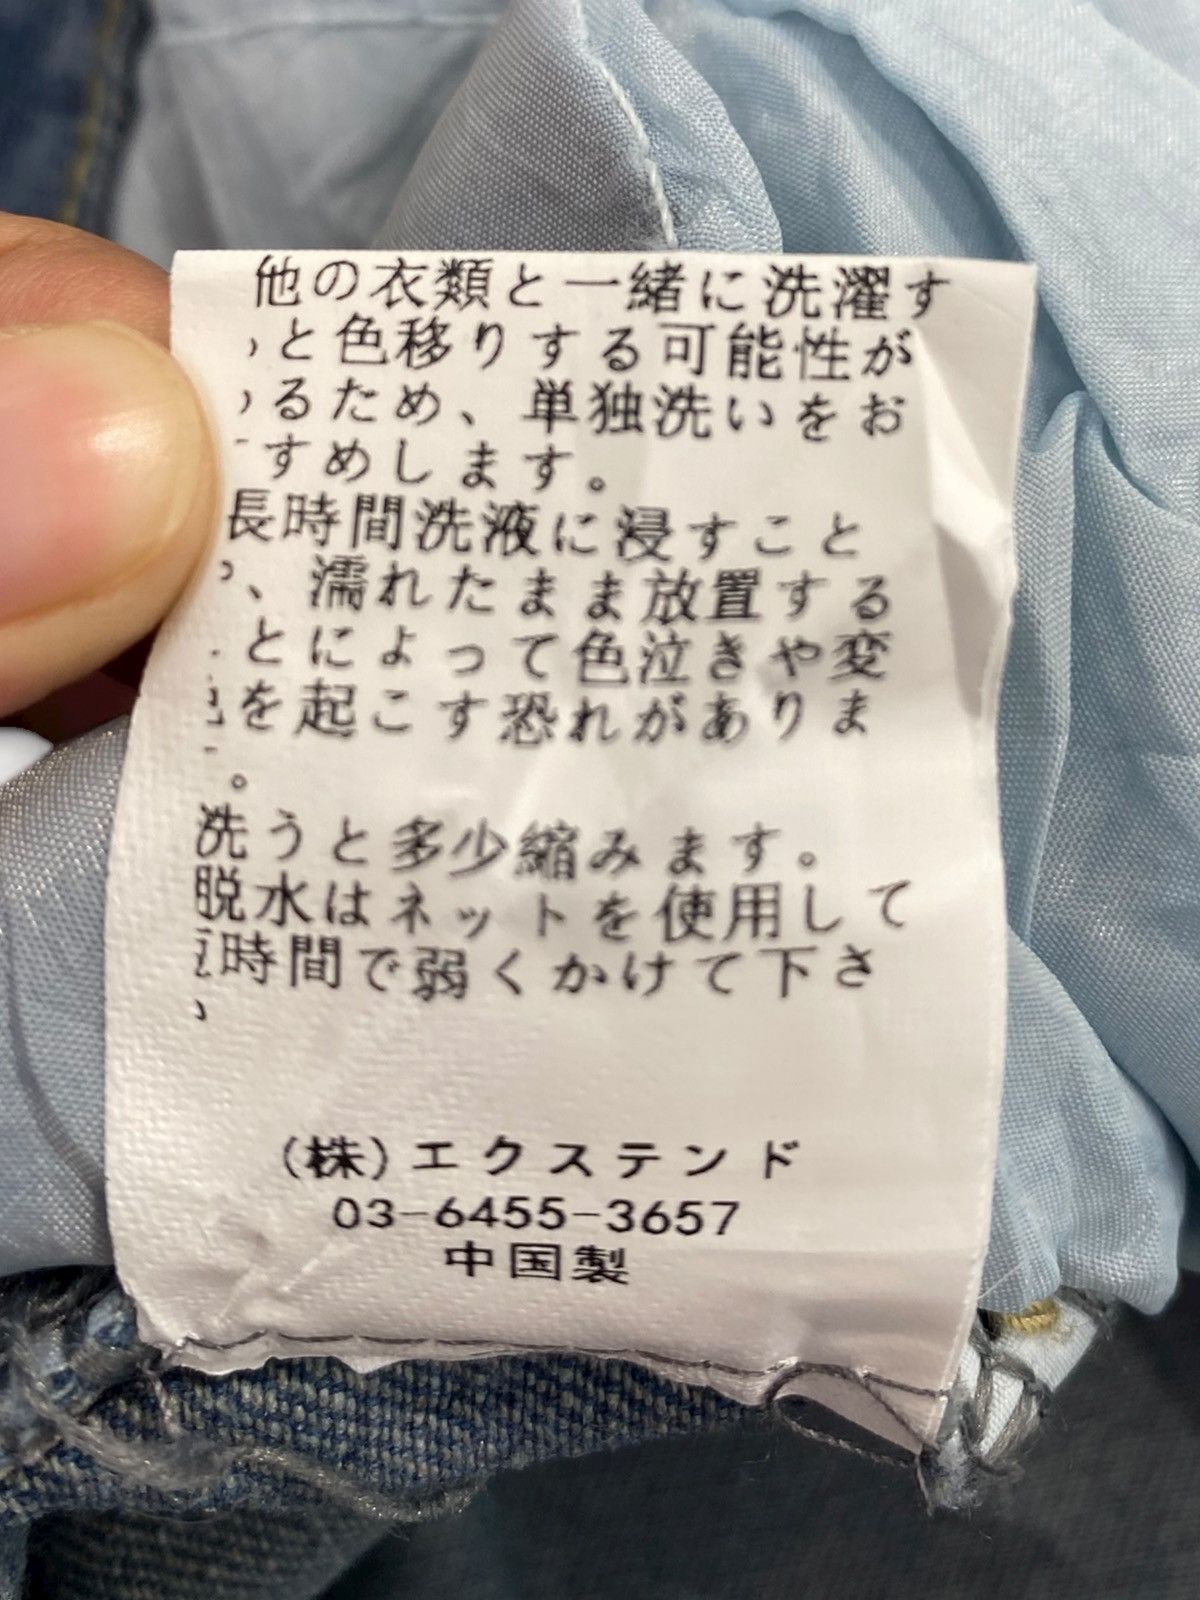 他の衣類と一緒に洗濯す
と色移りする可能性が
るため、単独洗いをお
すすめします。
長時間洗液に浸すこと
、濡れたまま放置する
とによって色泣きや変
色を起こす恐れがありま
。
洗うと多少縮みます。
脱水はネットを使用して
短時間で弱くかけて下さ
(株)エクステンド
03-6455-3657
中国製